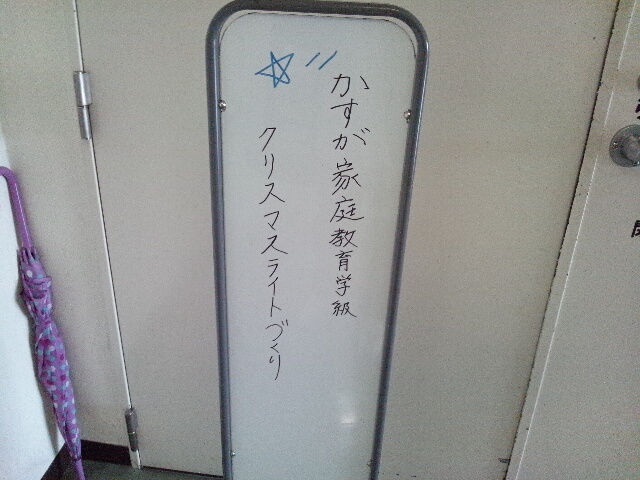 かすが家庭教育学級
クリスマスライトづくり